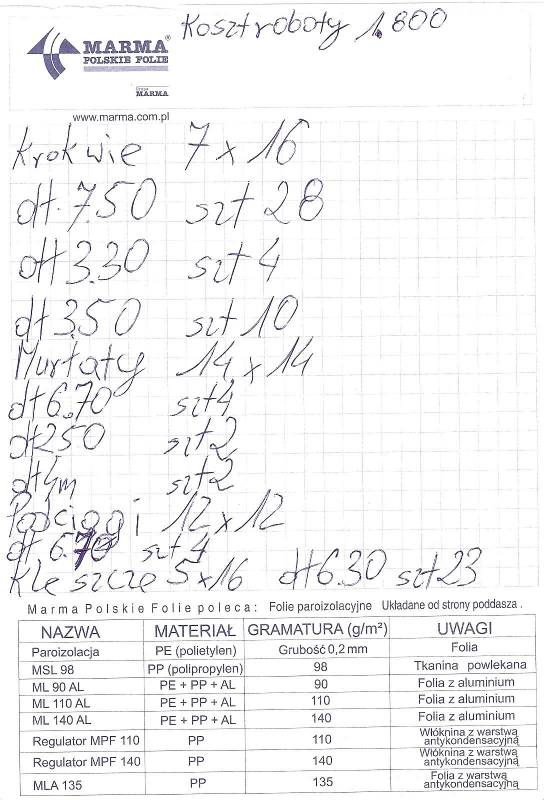 Koszt roboty 1.800
MARMA®
POLSKIE FOLIE
MARMA
www.marma.com.pl
Krokwie 7x16
dł. 7.50 szt 28
dł 3.30 szt 4
dł 3.50 szt 10
Murłaty 14x14
dł 6.70 szt 4
dł 250 szt 2
dł 4m szt 2
Podciągi 12x12
dł. 6.70 szt 4
Kleszcze 5x16 dł 6.30 szt 23
Marma Polskie Folie poleca: Folie paroizolacyjne Układane od strony poddasza.
NAZWA MATERIAŁ GRAMATURA (g/m²) UWAGI
Paroizolacja PE (polietylen) Grubość 0,2 mm Folia
MSL 98 PP (polipropylen) 98 Tkanina powlekana
ML 90 AL PE + PP + AL 90 Folia z aluminium
ML 110 AL PE + PP + AL 110 Folia z aluminium
ML 140 AL PE + PP + AL 140 Folia z aluminium
Regulator MPF 110 PP 110 Włóknina z warstwą antykondensacyjną
Regulator MPF 140 PP 140 Włóknina z warstwą antykondensacyjną
MLA 135 PP 135 Folia z warstwą antykondensacyjną